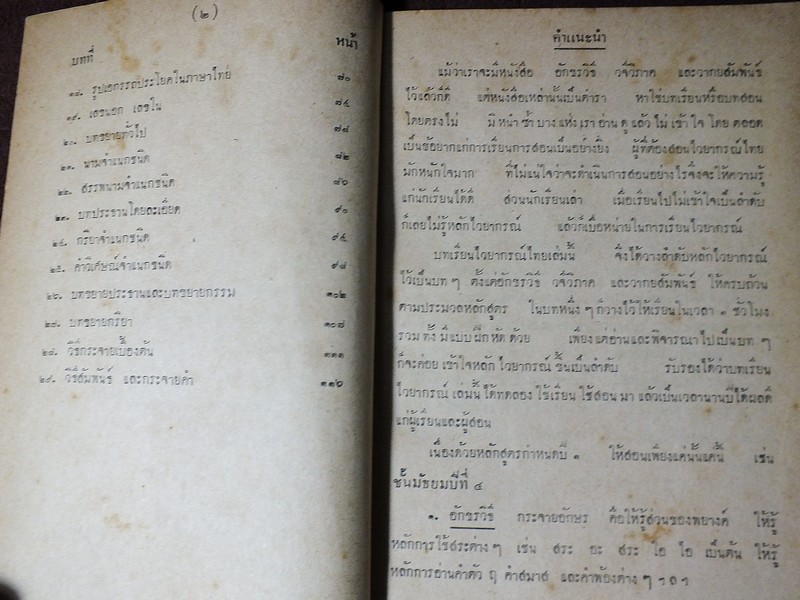 (๒)
บทที่ หน้า
๑๘. รูปเอกรรถประโยคในภาษาไทย ๗๐
๑๙. เลขนอก เลขใน ๗๔
๒๐. บทขยายทั่วไป ๗๘
๒๑. นามจำแนกชนิด ๘๒
๒๒. สรรพนามจำแนกชนิด ๘๖
๒๓. บทประธานโดยละเอียด ๙๐
๒๔. กริยาจำแนกชนิด ๙๔
๒๕. คำวิเศษณ์จำแนกชนิด ๙๘
๒๖. บทขยายประธานและบทขยายกรรม ๑๐๒
๒๗. บทขยายกริยา ๑๐๗
๒๘. วิธีกระจายเบื้องต้น ๑๑๑
๒๙. วิธีสัมพันธ์ และกระจายคำ ๑๑๖
คำแนะนำ
แม้ว่าเราจะมีหนังสือ อักขรวิธี วจีวิภาค และวากยสัมพันธ์
ไว้แล้วก็ดี แต่หนังสือเหล่านั้นเป็นตำรา หาใช่บทเรียนหรือบทสอน
โดยตรงไม่ มิหนำซ้ำบางแห่งเราอ่านดูแล้วไม่เข้าใจโดยตลอด
เป็นข้อยากแก่การเรียนการสอนเป็นอย่างยิ่ง ผู้ที่ต้องสอนไวยากรณ์ไทย
มักหนักใจมาก ที่ไม่แน่ใจว่าจะดำเนินการสอนอย่างไรจึงจะให้ความรู้
แก่นักเรียนได้ดี ส่วนนักเรียนเล่า เมื่อเรียนไปไม่เข้าใจเป็นลำดับ
ก็เลยไม่รู้หลักไวยากรณ์ แล้วก็เบื่อหน่ายในการเรียนไวยากรณ์
บทเรียนไวยากรณ์ไทยเล่มนี้ จึงได้วางลำดับหลักไวยากรณ์
ไว้เป็นบท ๆ ตั้งแต่อักขรวิธี วจีวิภาค และวากยสัมพันธ์ ให้ครบถ้วน
ตามประมวลหลักสูตร ในบทหนึ่ง ๆ ก็วางไว้ให้เรียนในเวลา ๑ ชั่วโมง
รวมทั้งมีแบบฝึกหัดด้วย เพียงแต่อ่านและพิจารณาไปเป็นบท ๆ
ก็จะค่อยเข้าใจหลักไวยากรณ์ขึ้นเป็นลำดับ รับรองได้ว่าบทเรียน
ไวยากรณ์เล่มนี้ได้ทดลองใช้เรียนใช้สอนมาแล้วเป็นเวลานานปีได้ผลดี
แก่ผู้เรียนและผู้สอน
เนื่องด้วยหลักสูตรกำหนดปี ๑ ให้สอนเพียงแค่นั้นแค่นี้ เช่น
ชั้นมัธยมปีที่ ๔
๑. อักขรวิธี กระจายอักษร คือให้รู้ส่วนของพยางค์ ให้รู้
หลักการใช้สระต่าง ๆ เช่น สระ อะ สระ ไอ ใอ เป็นต้น ให้รู้
หลักการอ่านคำตัว ฤ คำสมาส และคำพ้องต่าง ๆ ฯลฯ